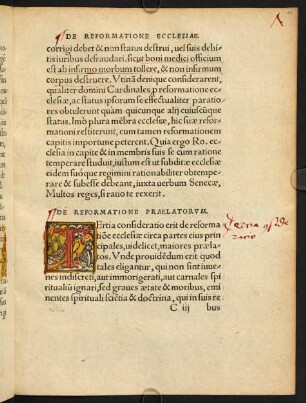 ¶DE REFORMATIONE ECCLESIAE.
corrigi debet & non status destrui, uel suis debi-
tis iuribus defraudari. sicut boni medici officium
est ab infirmo morbum tollere, & non infirmum
corpus destruere. Vtinã denique considerarent,
qualiter domini Cardinales p reformatione ec-
clesiæ, ac status ipsorum se effectualiter paratio-
res obtulerunt quàm quicunque alij cuiuscũque
status. Imò plura mẽbra ecclesiæ, hic suæ refor-
mationi restiterunt, cum tamen reformationem
capitis importune peterent. Quia ergo Ro. ec-
clesia in capite & in membris suis se cum ratione
temperare studuit, iustum est ut subditæ ecclesiæ
eidem suóque regimini rationabiliter obtempe-
rare & subesse debeant, iuxta uerbum Senecæ,
Multos reges, si ratio te rexerit.
¶DE REFORMATIONE PRÆLATORVM.
TErtia consideratio erit de reforma
tiõe ecclesiæ circa partes eius prin
cipales, uidelicet, maiores præla-
tos. Vnde prouidẽdum erit quod
tales eligantur, qui non sint iuue-
nes indiscreti, aut immorigerati, aut carnales spi-
ritualiũ ignari, sed graues ætate & moribus, emi
nentes spirituali sciẽtia & doctrina, qui in suis re
C iij bus